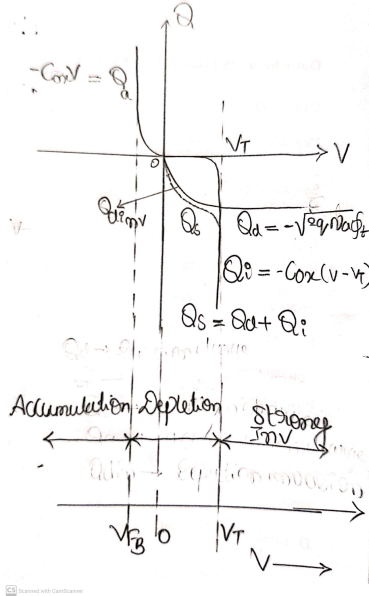 Q
-CoxV = Qa
VT
V
0
Qdinv
Qs
Qd = -√2qNaϕt
Qi = -Cox(V-VT)
Qs = Qd + Qi
Accumulation Depletion Strong
Inv
VFB 0 VT
V
CS Scanned with CamScanner